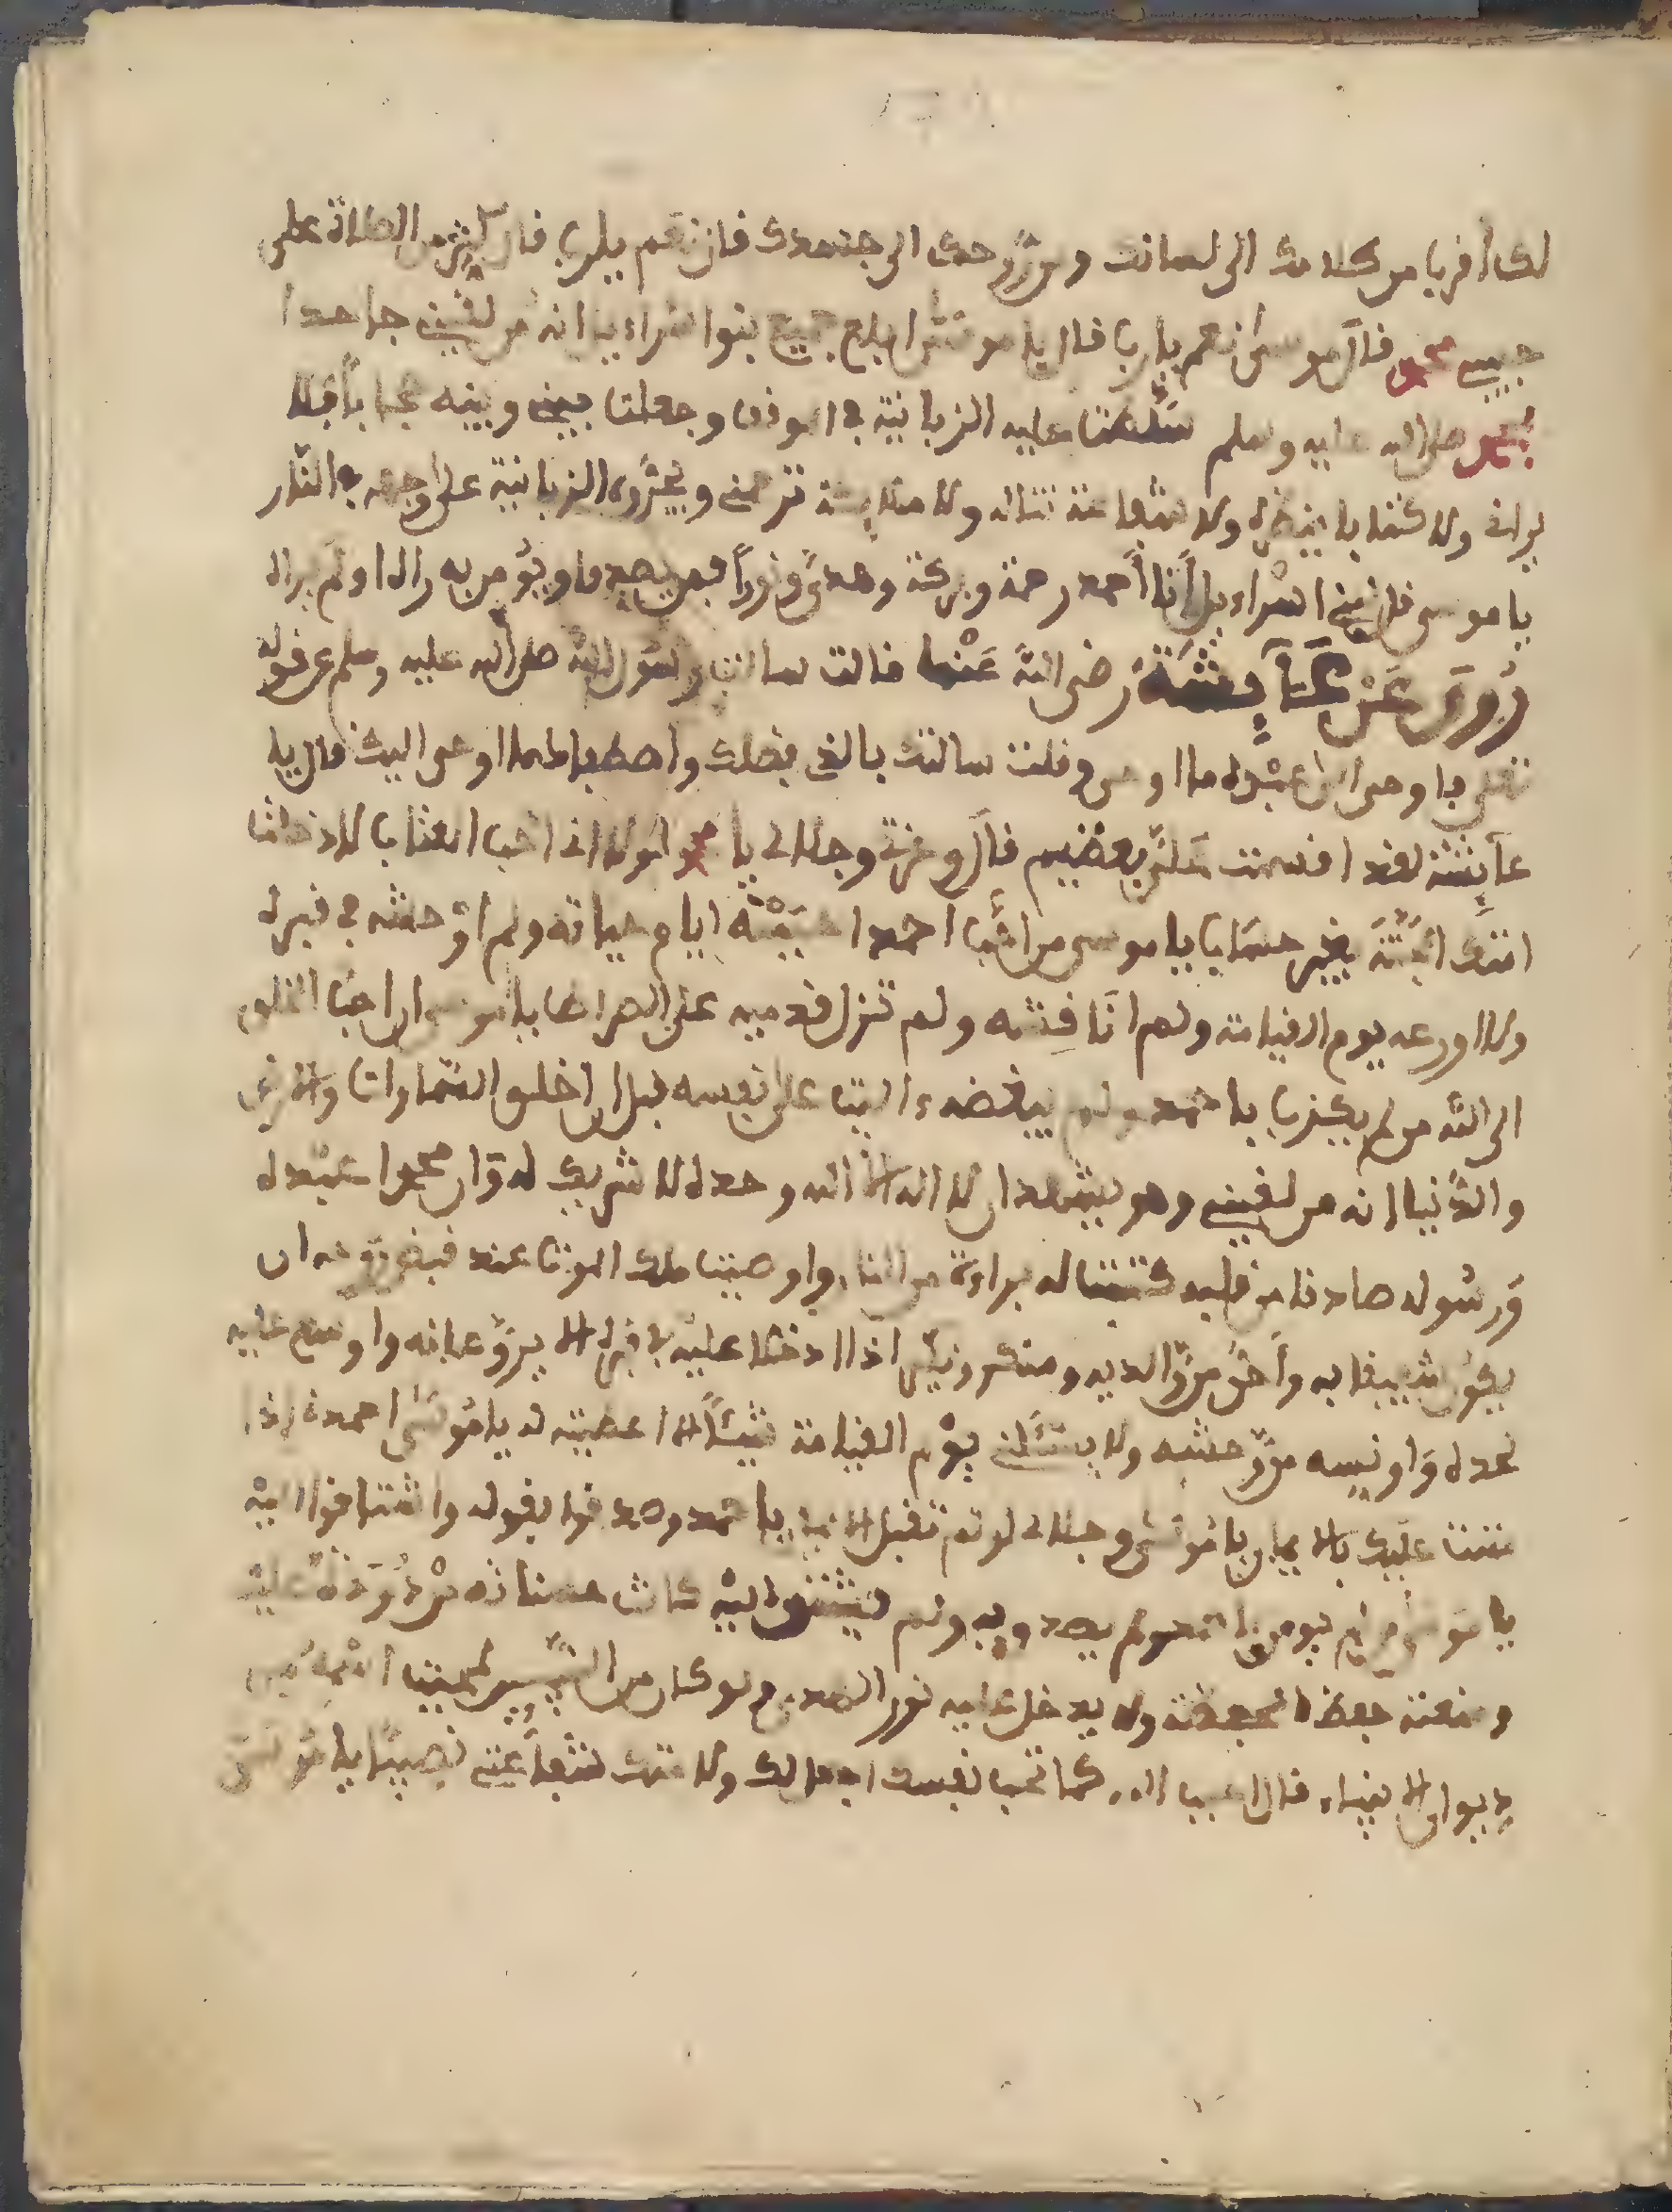 لك أقربا من كلامك الى لسانك ومن روحك الى جسدك قال نعم يارب قال اكثر من الصلاة على
حبيبي محمد قال موسى نعم يارب قال يا موسى ابلغ جميع بنوا اسراءيل انه من لقيني جاحدا
بمحمد صلى الله عليه وسلم سلطت عليه الزبانية في الموقف وجعلت بيني وبينه حجابا فلا
يراني ولا كتابا ينظره ولا شفاعة تناله ولا ملايكة ترحمه ويجروه الزبانية على وجهه في النار
يا موسى قل لبني اسراءيل أنا أحمد رحمة وبركة وهدى ونورا فمن يصدق ويؤمن به راه اولم يراه
رُوِيَ عَنْ عَآيِشَة رضي الله عَنْها قالت سالت رسول الله صلى الله عليه وسلم عن قوله
تعلى فاوحى الى عبده ما اوحى وقلت سالتك بالذي فضلك واصطفاك ما اوحى اليك قال يا
عآيشة لقد اقسمت علي بعظيم قال وعزتي وجلالي يا محمد لولا اني احب العتاب لادخلت
امتك الجنة بغير حساب يا موسى من احب احمد احببته ايام حياته ولم اوحشه في قبره
ولا اورعه يوم القيامة ولم اناقشه ولم تزل قدميه على الصراط يا موسى ان احب الخلق
الى الله من لم يكذب باحمد ولم يبغضه ءاليت على نفسه قبل ان اخلق السماوات والارض
والدنيا انه من لقيني وهو يشهد ان لا اله الا الله وحده لا شريك له وان محمدا عبده
وَرسُوله صادقا من قلبه كتبت له براءة من النار واوصيت ملك الموت عند قبض روحه ان
يكون شفيقا به وأحن من والديه ومنكر ونكير اذا ادخلا عليه في قبره لا يروعانه واوسع عليه
لحده وَاونسه من وحشه ولا يسئلني يوْم القيامة شيئا الا اعطيته له يا مُوسى احمدني اذا
مننت عليك بالايمان يا مُوسى وجلالي لو لم تقبل الايمان باحمد وصدقوا بقوله واشتاقوا اليْه
يا موسى من لم يومن باحمد ولم يصدق به ولم يشتق اليْه كانت حسناته مرْدُودَة عليْه
ومنعته حفظ الحفظة ولا يدخل عليه نور الهدى ولو كان من النبيين لمحيت اسمه من
ديوان الانبياء قال احب الله كما تحب نفسك اجعل لك ولامتك شفاعتي نصيبا يا موسى